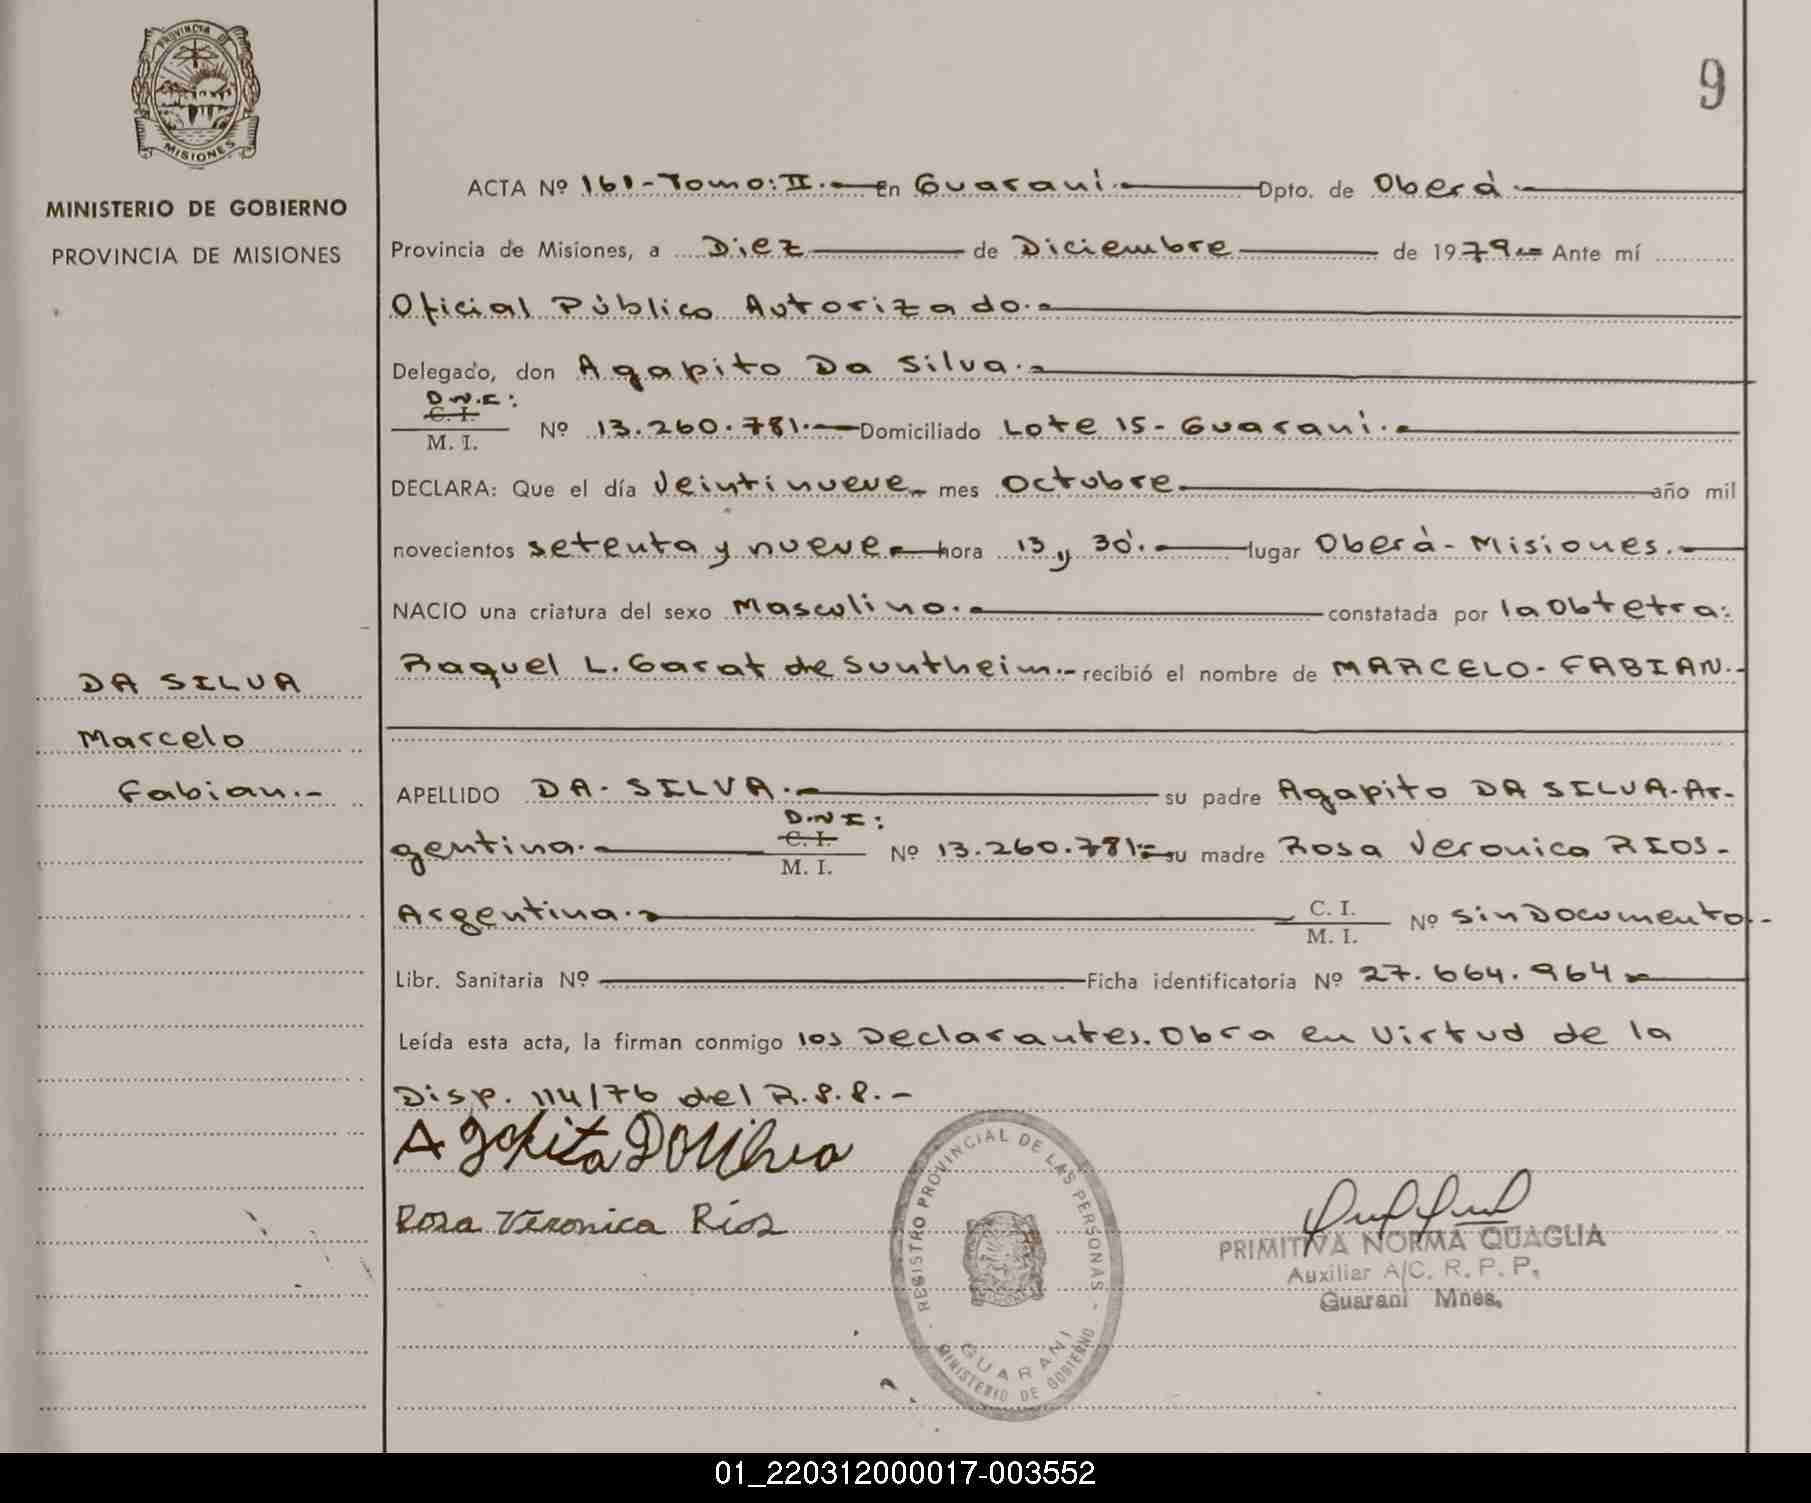 PROVINCIA DE
MISIONES
MINISTERIO DE GOBIERNO
PROVINCIA DE MISIONES
DA SILVA
Marcelo
Fabian.-
9
ACTA Nº 161-Tomo:II.- En Guaraní.- Dpto. de Oberá.-
Provincia de Misiones, a Diez de Diciembre de 1979.- Ante mí
Oficial Público Autorizado.-
Delegado, don Agapito Da Silva.-
D.N.I:
C. I.
M. I. Nº 13.260.781.- Domiciliado Lote 15- Guaraní.-
DECLARA: Que el día Veintinueve mes Octubre año mil
novecientos setenta y nueve.- hora 13 y 30'.- lugar Oberá- Misiones.-
NACIO una criatura del sexo Masculino.- constatada por la Obtetra:
Raquel L. Garat de Suntheim.- recibió el nombre de MARCELO- FABIAN.-
APELLIDO DA- SILVA.- su padre Agapito DA SILVA-Ar-
D.N.I:
gentina.- C. I. M. I. Nº 13.260.781.- su madre Rosa Veronica RIOS-
Argentina.- C. I. M. I. Nº sin Documento.-
Libr. Sanitaria Nº Ficha identificatoria Nº 27.664.964.-
Leída esta acta, la firman conmigo los Declarantes. Obra en Virtud de la
Disp. 114/76 del R.P.P.-
Rosa Veronica Ríos
REGISTRO PROVINCIAL DE LAS PERSONAS
GUARANI
MINISTERIO DE GOBIERNO
PRIMITIVA NORMA QUAGLIA
Auxiliar A/C. R. P. P.
Guaraní Mnes.
01_220312000017-003552